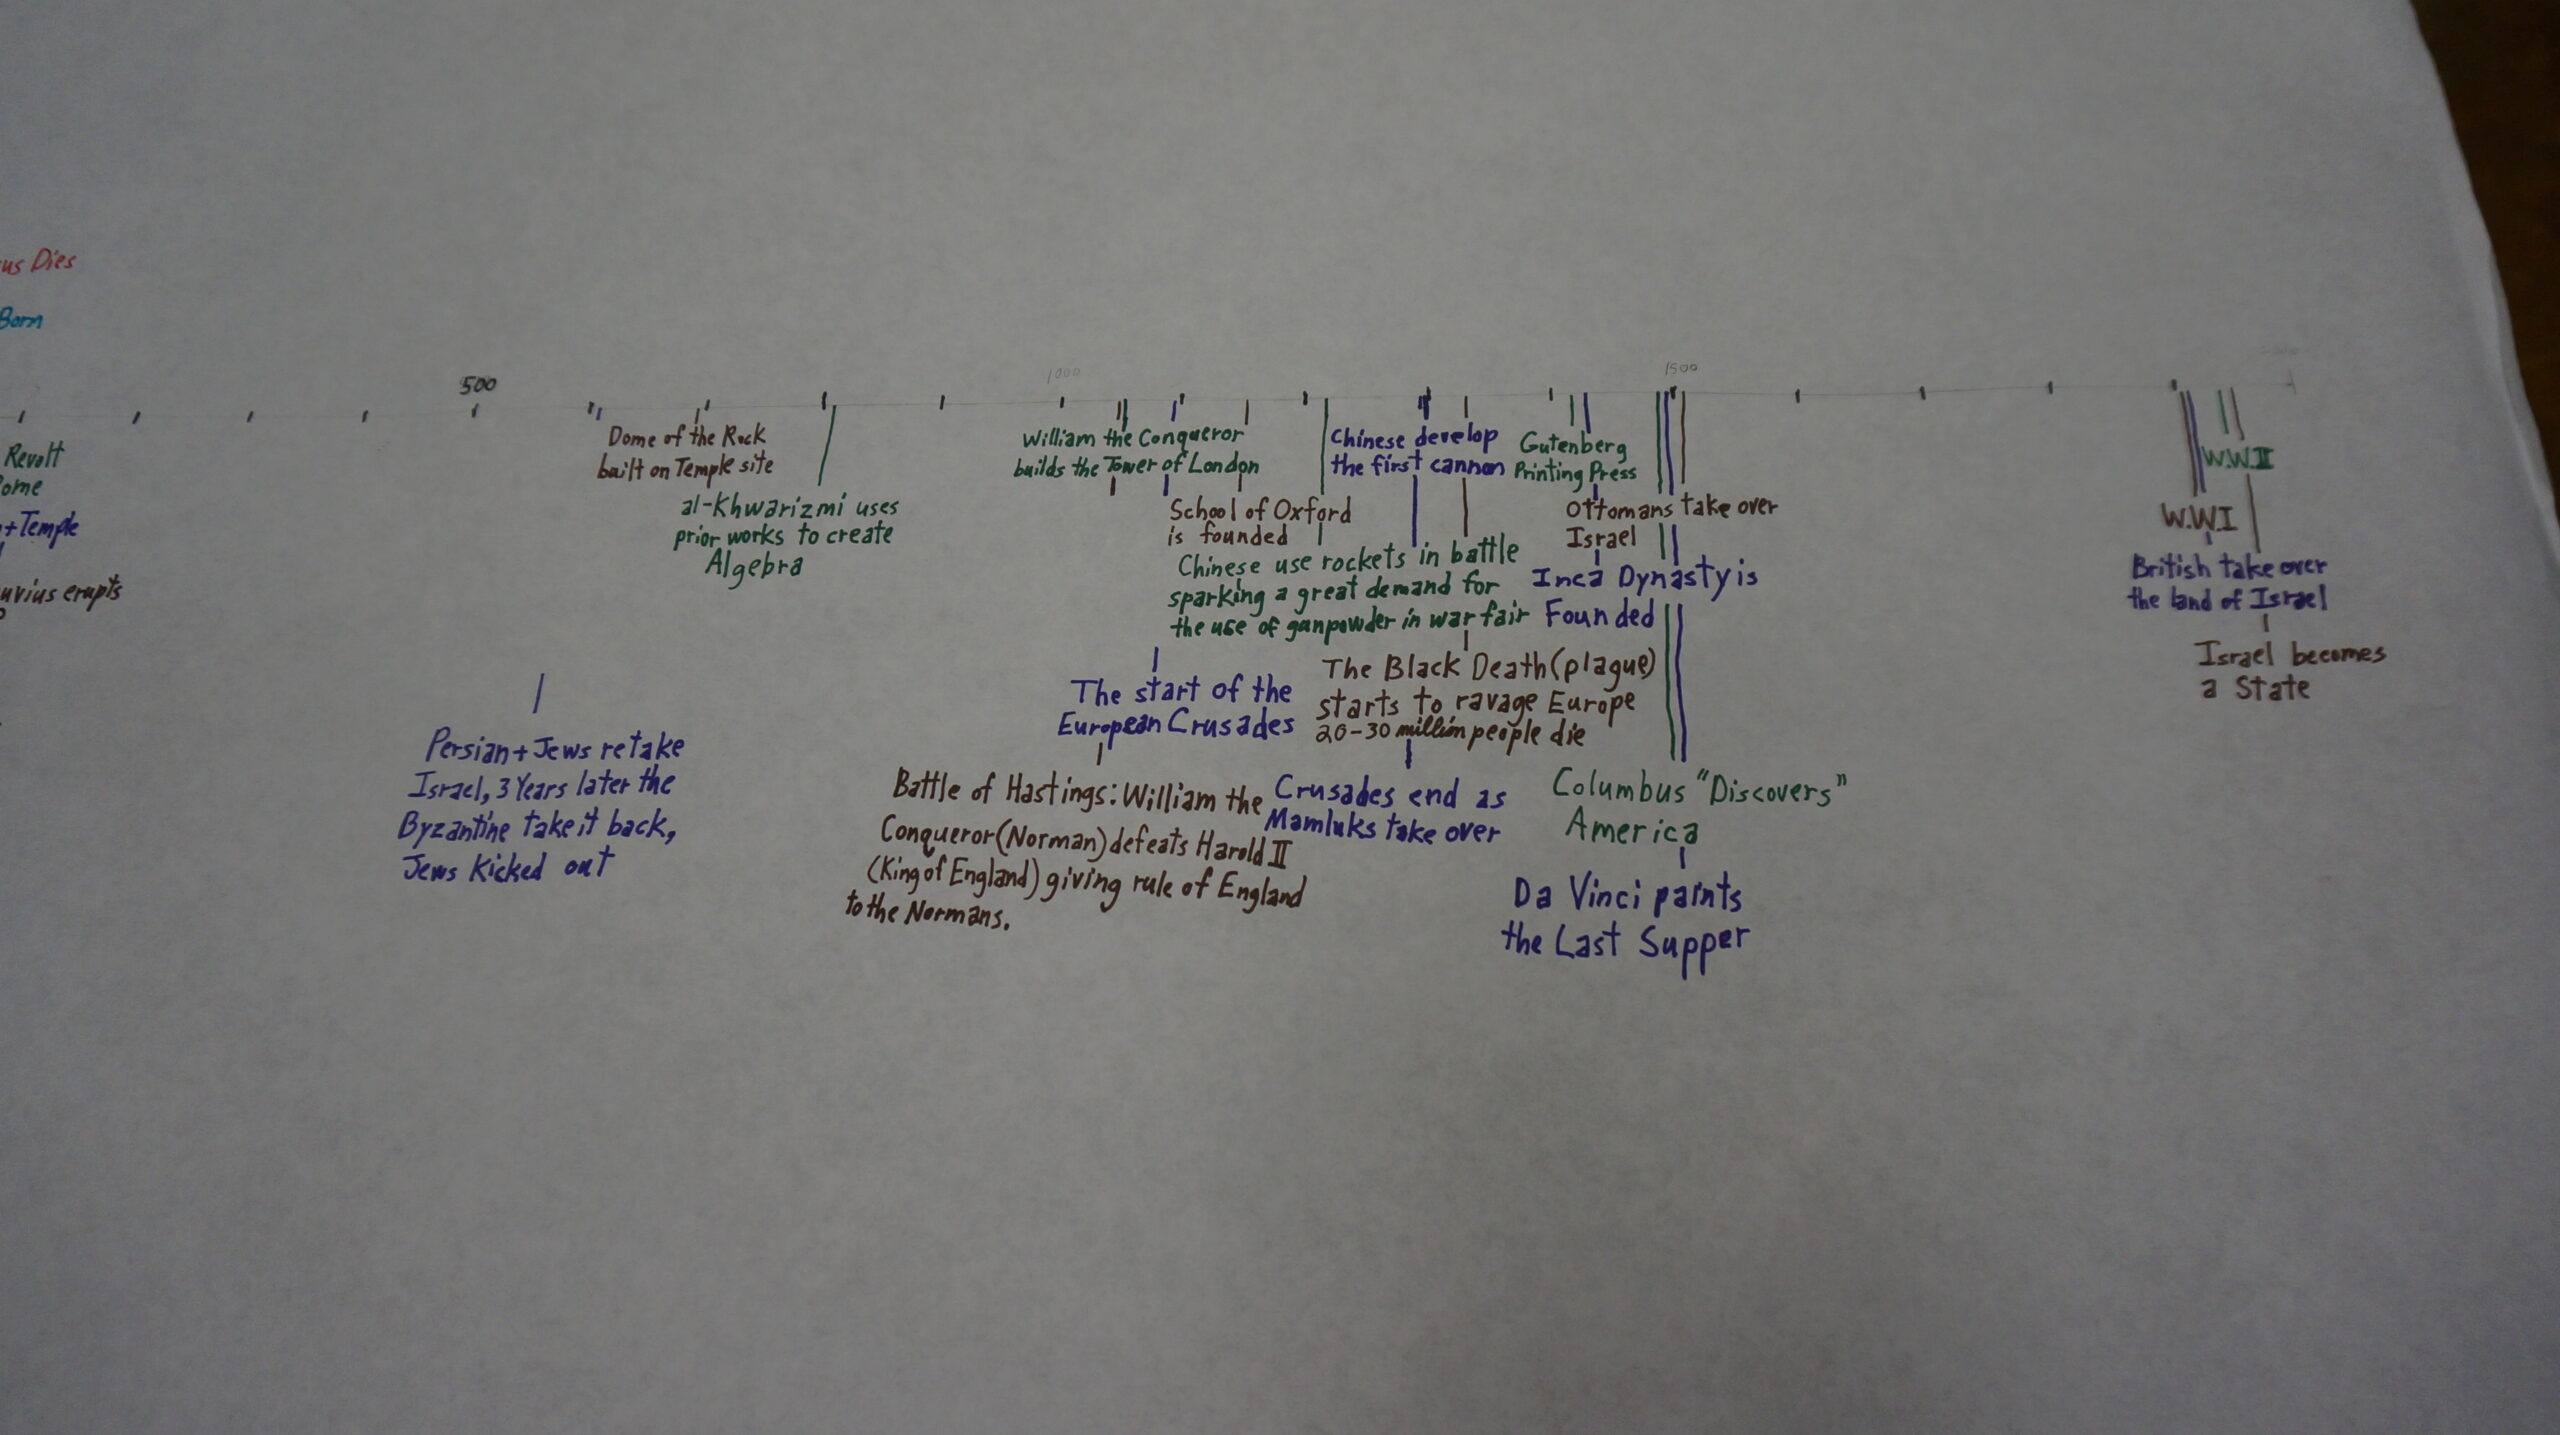 us Dies
Born
500
1000
1500
Revolt
ome
+Temple
uvius erupts
Dome of the Rock
built on Temple site
al-Khwarizmi uses
prior works to create
Algebra
Persian + Jews retake
Israel, 3 Years later the
Byzantine take it back,
Jews Kicked out
William the Conqueror
builds the Tower of London
School of Oxford
is founded
Chinese develop
the first cannon
Gutenberg
Printing Press
Ottomans take over
Israel
Chinese use rockets in battle
sparking a great demand for
the use of gunpowder in war fair
Inca Dynasty is
Founded
The start of the
European Crusades
The Black Death (plague)
starts to ravage Europe
20-30 million people die
Battle of Hastings: William the
Conqueror (Norman) defeats Harold II
(King of England) giving rule of England
to the Normans.
Crusades end as
Mamluks take over
Columbus "Discovers"
America
Da Vinci paints
the Last Supper
W.W.II
W.W.I
British take over
the land of Israel
Israel becomes
a State